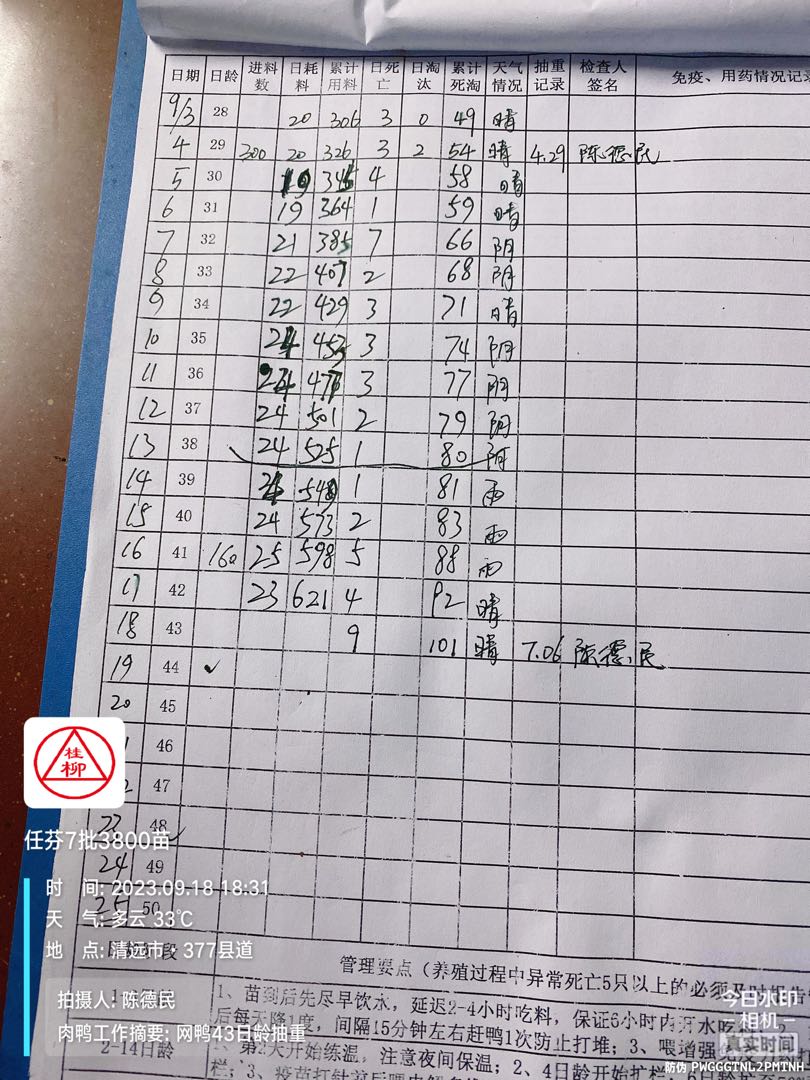 日期 日龄 进料数 日耗料 累计用料 日死亡 日淘汰 累计死淘 天气情况 抽重记录 检查人签名 免疫、用药情况记
9/3 28 20 306 3 0 49 晴
4 29 300 20 326 3 2 54 晴 4.29 陈德民
5 30 19 345 4 58 晴
6 31 19 364 1 59 晴
7 32 21 385 7 66 阴
8 33 22 407 2 68 阴
9 34 22 429 3 71 晴
10 35 24 453 3 74 阴
11 36 24 477 3 77 阴
12 37 24 501 2 79 阴
13 38 24 525 1 80 阴
14 39 1 81 雨
15 40 24 573 2 83 雨
16 41 160 25 598 5 88 雨
17 42 23 621 4 92 晴
18 43 9 101 晴 7.06 陈德民
19 44 ✓
20 45
46
47
48
24 49
25 50
管理要点（养殖过程中异常死亡5只以上的必须及时报告
1、苗到后先尽早饮水，延迟2-4小时吃料，保证6小时内
后每天降1度，间隔15分钟左右赶鸭1次防止打堆；3、喂增强
2-14日龄 天开始练温，注意夜间保温；2、4日龄开始扩栏
桂柳
任芬7批3800苗
时 间: 2023.09.18 18:31
天 气: 多云 33℃
地 点: 清远市·377县道
拍摄人: 陈德民
肉鸭工作摘要: 网鸭43日龄抽重
今日水印
相机
真实时间
防伪 PWGGGTNL2PMTNH